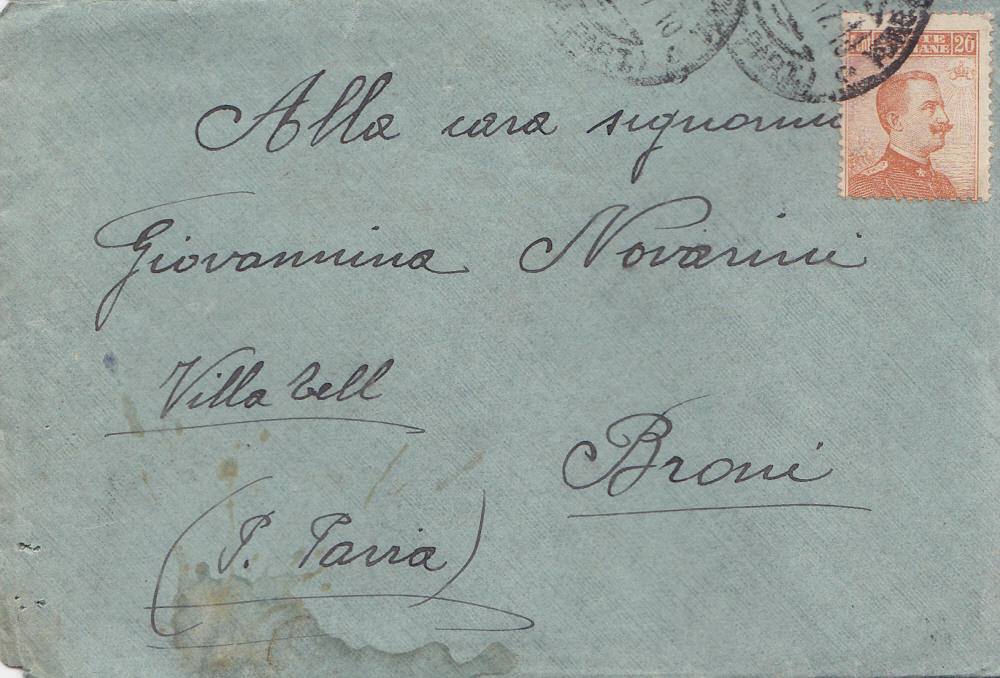 20 POSTE ITALIANE 20
Alla cara signorina
Giovannina Novarini
Villa Tell
Broni
(P. Pavia)